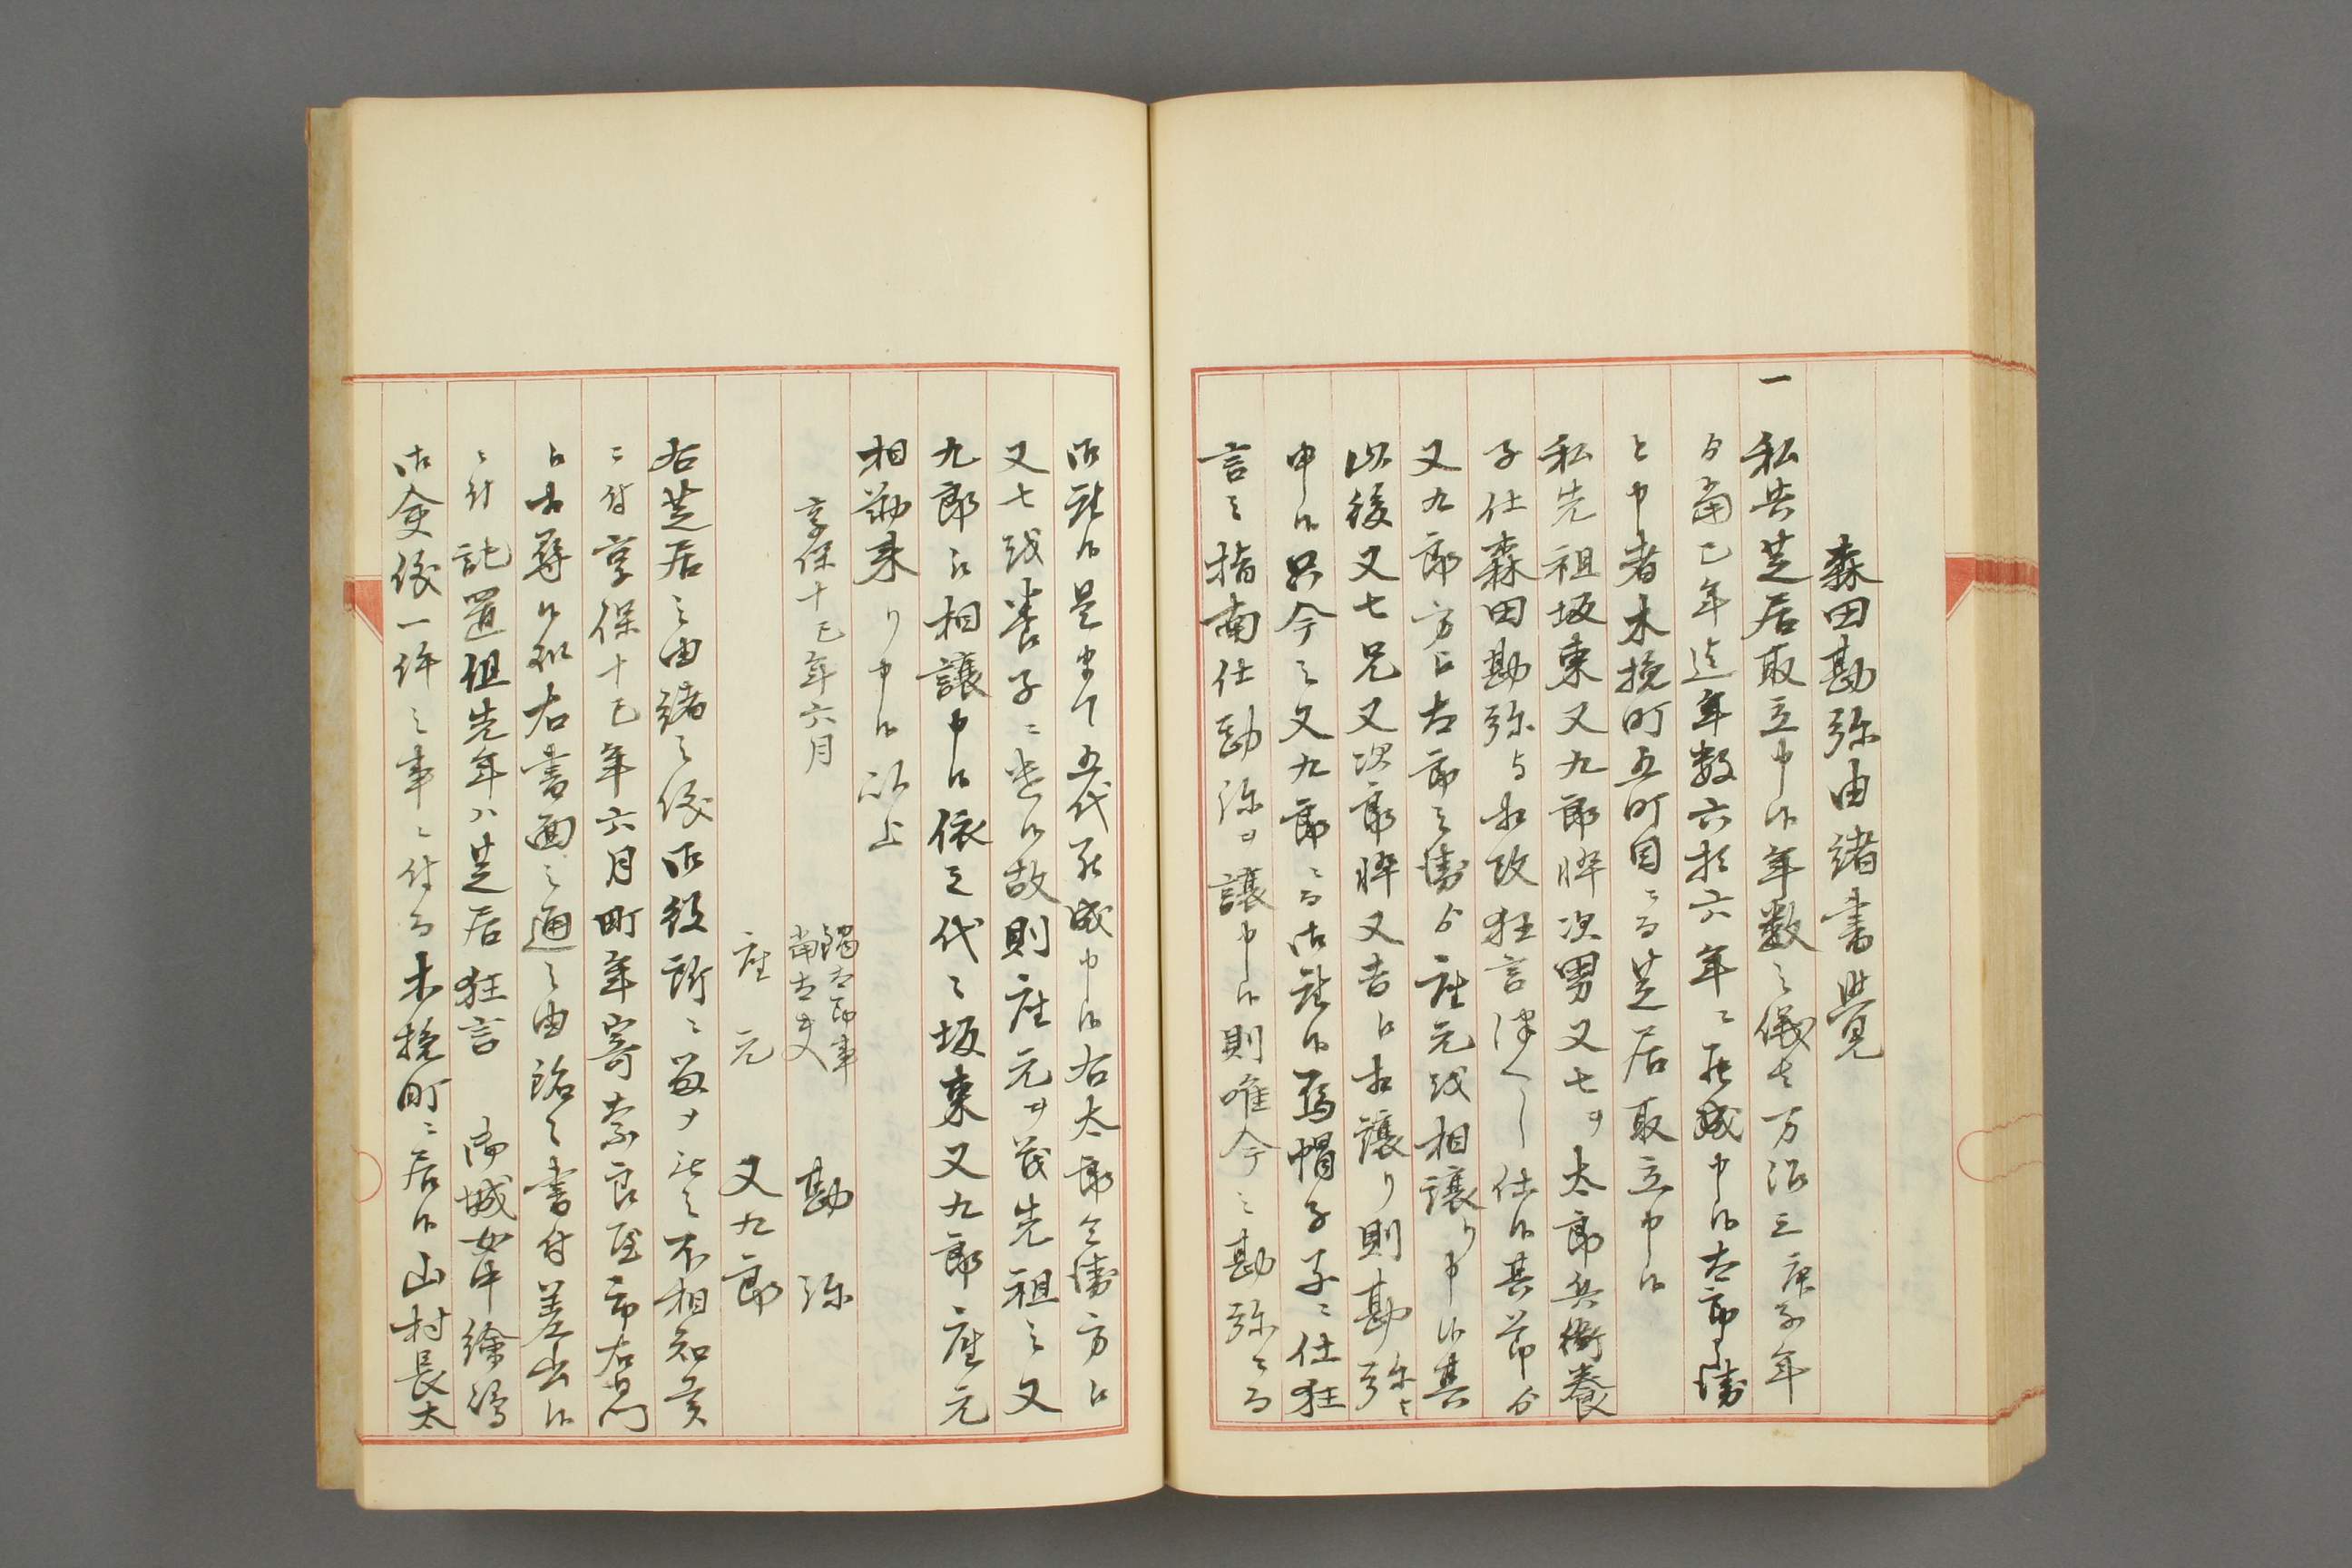 森田勘弥由緒書覚
一 私共芝居取立申候年数之儀者万治三庚子年
ゟ当巳年迄年数六拾六年ニ罷成申候太郎兵衛
と申者木挽町五町目ニ而芝居取立申候
私先祖坂東又九郎悴次男又七ヲ太郎兵衛養
子仕森田勘弥与相改狂言仕候其節ゟ
又九郎方江太郎兵衛ゟ座元越相譲り申候其
以後又七兄又次郎悴又吉江相譲り則勘弥と
申候只今之又九郎ニ而御座候烏帽子子ニ仕狂
言之指南仕勘弥ヲ譲申候則唯今之勘弥ニ而
御座候是迄五代罷成申候右太郎兵衛方江
又七越養子ニ遣候故則座元ヲ茂先祖之又
九郎江相譲申候依之代々坂東又九郎座元
相勤来り申候以上
享保十巳年六月
太郎事
当太夫 勘弥
座元 又九郎
右芝居之由緒之儀御役所ニ留メ無之不相知義
ニ付享保十巳年六月町年寄奈良屋市右衛門
江相尋候処右書面之通之由認之書付差出候
ニ付記置但先年ハ芝居狂言 御城女中絵嶋
御僉儀一件之事ニ付而木挽町ニ居候山村長太